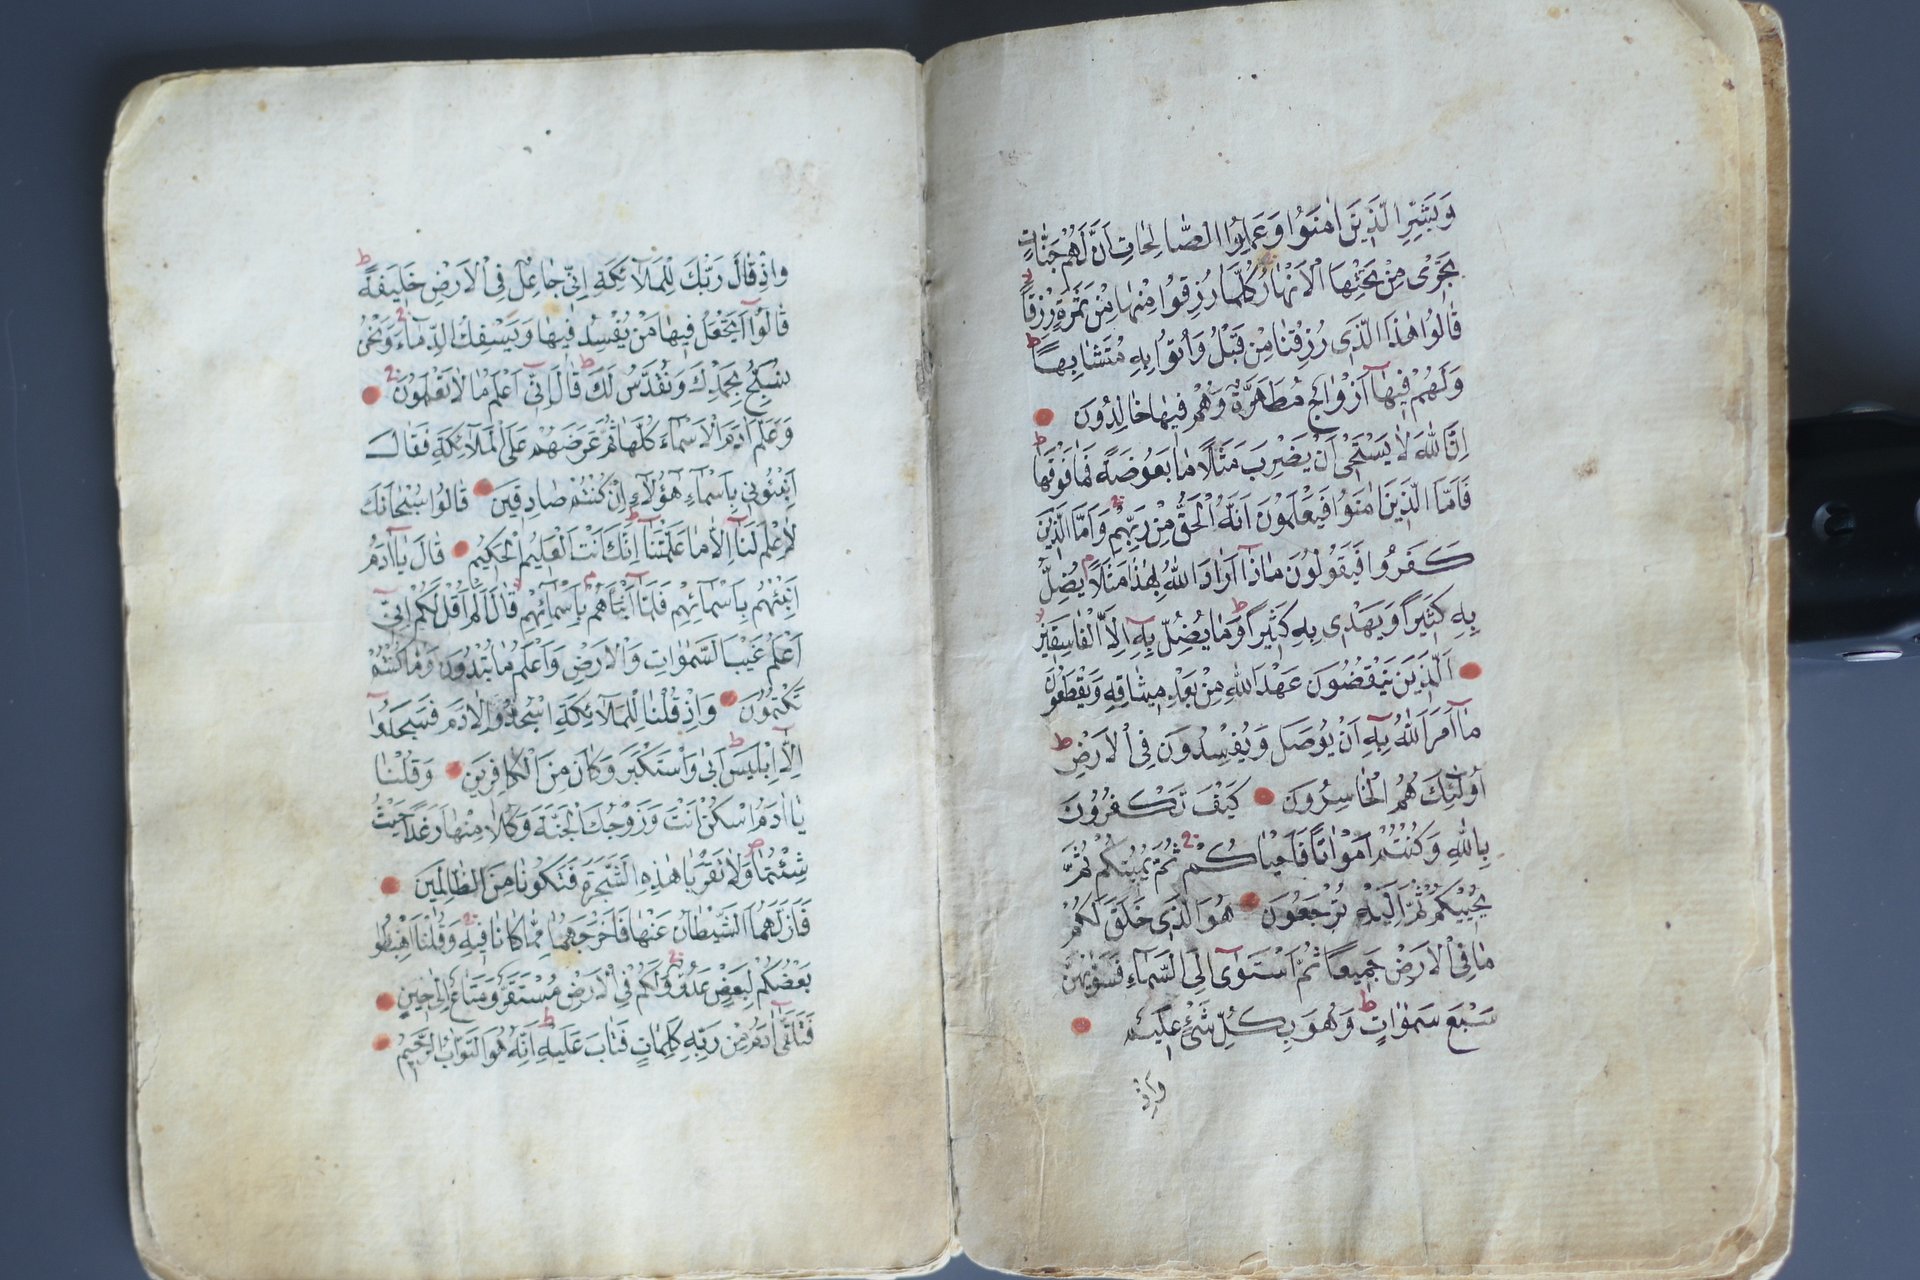 وَبَشِّرِ الَّذِينَ اٰمَنُوا وَعَمِلُوا الصَّالِحَاتِ اَنَّ لَهُمْ جَنَّاتٍ
تَجْرِى مِنْ تَحْتِهَا الْاَنْهَارُ كُلَّمَا رُزِقُوا مِنْهَا مِنْ ثَمَرَةٍ رِزْقًا لا
قَالُوا هٰذَا الَّذِى رُزِقْنَا مِنْ قَبْلُ وَاُتُوا بِهِ مُتَشَابِهًا ط
وَلَهُمْ فِيهَآ اَزْوَاجٌ مُطَهَّرَةٌ وَهُمْ فِيهَا خَالِدُونَ
اِنَّ اللّٰهَ لَا يَسْتَحْىٖ اَنْ يَضْرِبَ مَثَلًا مَا بَعُوضَةً فَمَا فَوْقَهَا ط
فَاَمَّا الَّذِينَ اٰمَنُوا فَيَعْلَمُونَ اَنَّهُ الْحَقُّ مِنْ رَبِّهِمْ ج وَاَمَّا الَّذِينَ
كَفَرُوا فَيَقُولُونَ مَاذَآ اَرَادَ اللّٰهُ بِهٰذَا مَثَلًا م يُضِلُّ
بِهِ كَثِيرًا وَيَهْدِى بِهِ كَثِيرًا ط وَمَا يُضِلُّ بِهٖٓ اِلَّا الْفَاسِقِينَ لا
الَّذِينَ يَنْقُضُونَ عَهْدَ اللّٰهِ مِنْ بَعْدِ مِيثَاقِهِ وَيَقْطَعُونَ
مَآ اَمَرَ اللّٰهُ بِهٖٓ اَنْ يُوصَلَ وَيُفْسِدُونَ فِى الْاَرْضِ ط
اُولٰٓئِكَ هُمُ الْخَاسِرُونَ كَيْفَ تَكْفُرُونَ
بِاللّٰهِ وَكُنْتُمْ اَمْوَاتًا فَاَحْيَاكُمْ ج ثُمَّ يُمِيتُكُمْ ثُمَّ
يُحْيِيكُمْ ثُمَّ اِلَيْهِ تُرْجَعُونَ هُوَ الَّذِى خَلَقَ لَكُمْ
مَا فِى الْاَرْضِ جَمِيعًا ثُمَّ اسْتَوٰٓى اِلَى السَّمَآءِ فَسَوّٰيهُنَّ
سَبْعَ سَمٰوَاتٍ ط وَهُوَ بِكُلِّ شَىْءٍ عَلِيمٌ
وَاِذْ
وَاِذْ قَالَ رَبُّكَ لِلْمَلَآئِكَةِ اِنِّى جَاعِلٌ فِى الْاَرْضِ خَلِيفَةً ط
قَالُوٓا اَتَجْعَلُ فِيهَا مَنْ يُفْسِدُ فِيهَا وَيَسْفِكُ الدِّمَآءَ ج وَنَحْنُ
نُسَبِّحُ بِحَمْدِكَ وَنُقَدِّسُ لَكَ ط قَالَ اِنِّىٓ اَعْلَمُ مَا لَا تَعْلَمُونَ
وَعَلَّمَ اٰدَمَ الْاَسْمَآءَ كُلَّهَا ثُمَّ عَرَضَهُمْ عَلَى الْمَلَآئِكَةِ فَقَالَ
اَنْبِئُونِى بِاَسْمَآءِ هٰٓؤُلَآءِ اِنْ كُنْتُمْ صَادِقِينَ قَالُوا سُبْحَانَكَ
لَا عِلْمَ لَنَآ اِلَّا مَا عَلَّمْتَنَا ط اِنَّكَ اَنْتَ الْعَلِيمُ الْحَكِيمُ قَالَ يَآ اٰدَمُ
اَنْبِئْهُمْ بِاَسْمَآئِهِمْ فَلَمَّآ اَنْبَاَهُمْ بِاَسْمَآئِهِمْ لا قَالَ اَلَمْ اَقُلْ لَكُمْ اِنِّىٓ
اَعْلَمُ غَيْبَ السَّمٰوَاتِ وَالْاَرْضِ وَاَعْلَمُ مَا تُبْدُونَ وَمَا كُنْتُمْ
تَكْتُمُونَ وَاِذْ قُلْنَا لِلْمَلَآئِكَةِ اسْجُدُوا لِاٰدَمَ فَسَجَدُوٓا
اِلَّآ اِبْلِيسَ ط اَبٰى وَاسْتَكْبَرَ وَكَانَ مِنَ الْكَافِرِينَ وَقُلْنَا
يَآ اٰدَمُ اسْكُنْ اَنْتَ وَزَوْجُكَ الْجَنَّةَ وَكُلَا مِنْهَا رَغَدًا حَيْثُ
شِئْتُمَا ص وَلَا تَقْرَبَا هٰذِهِ الشَّجَرَةَ فَتَكُونَا مِنَ الظَّالِمِينَ
فَاَزَلَّهُمَا الشَّيْطَانُ عَنْهَا فَاَخْرَجَهُمَا مِمَّا كَانَا فِيهِ ج وَقُلْنَا اهْبِطُوا
بَعْضُكُمْ لِبَعْضٍ عَدُوٌّ ج وَلَكُمْ فِى الْاَرْضِ مُسْتَقَرٌّ وَمَتَاعٌ اِلٰى حِينٍ
فَتَلَقّٰٓى اٰدَمُ مِنْ رَبِّهِ كَلِمَاتٍ فَتَابَ عَلَيْهِ ط اِنَّهُ هُوَ التَّوَّابُ الرَّحِيمُ